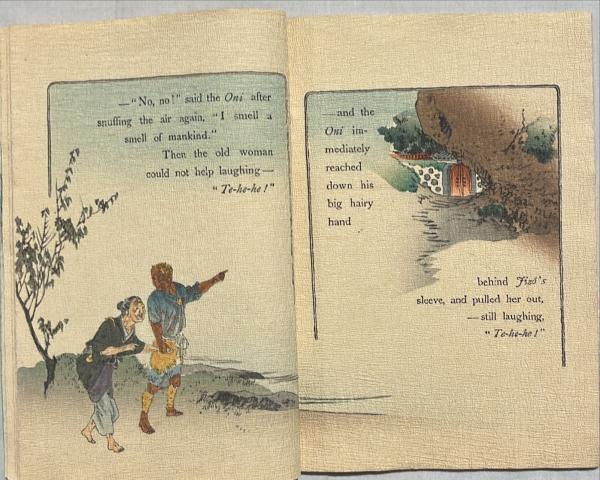 —"No, no!" said the Oni after
snuffing the air again, "I smell a
smell of mankind."
Then the old woman
could not help laughing—
"Te-he-he!"
—and the
Oni im-
mediately
reached
down his
big hairy
hand
behind Jizō's
sleeve, and pulled her out,
—still laughing,
"Te-he-he!"